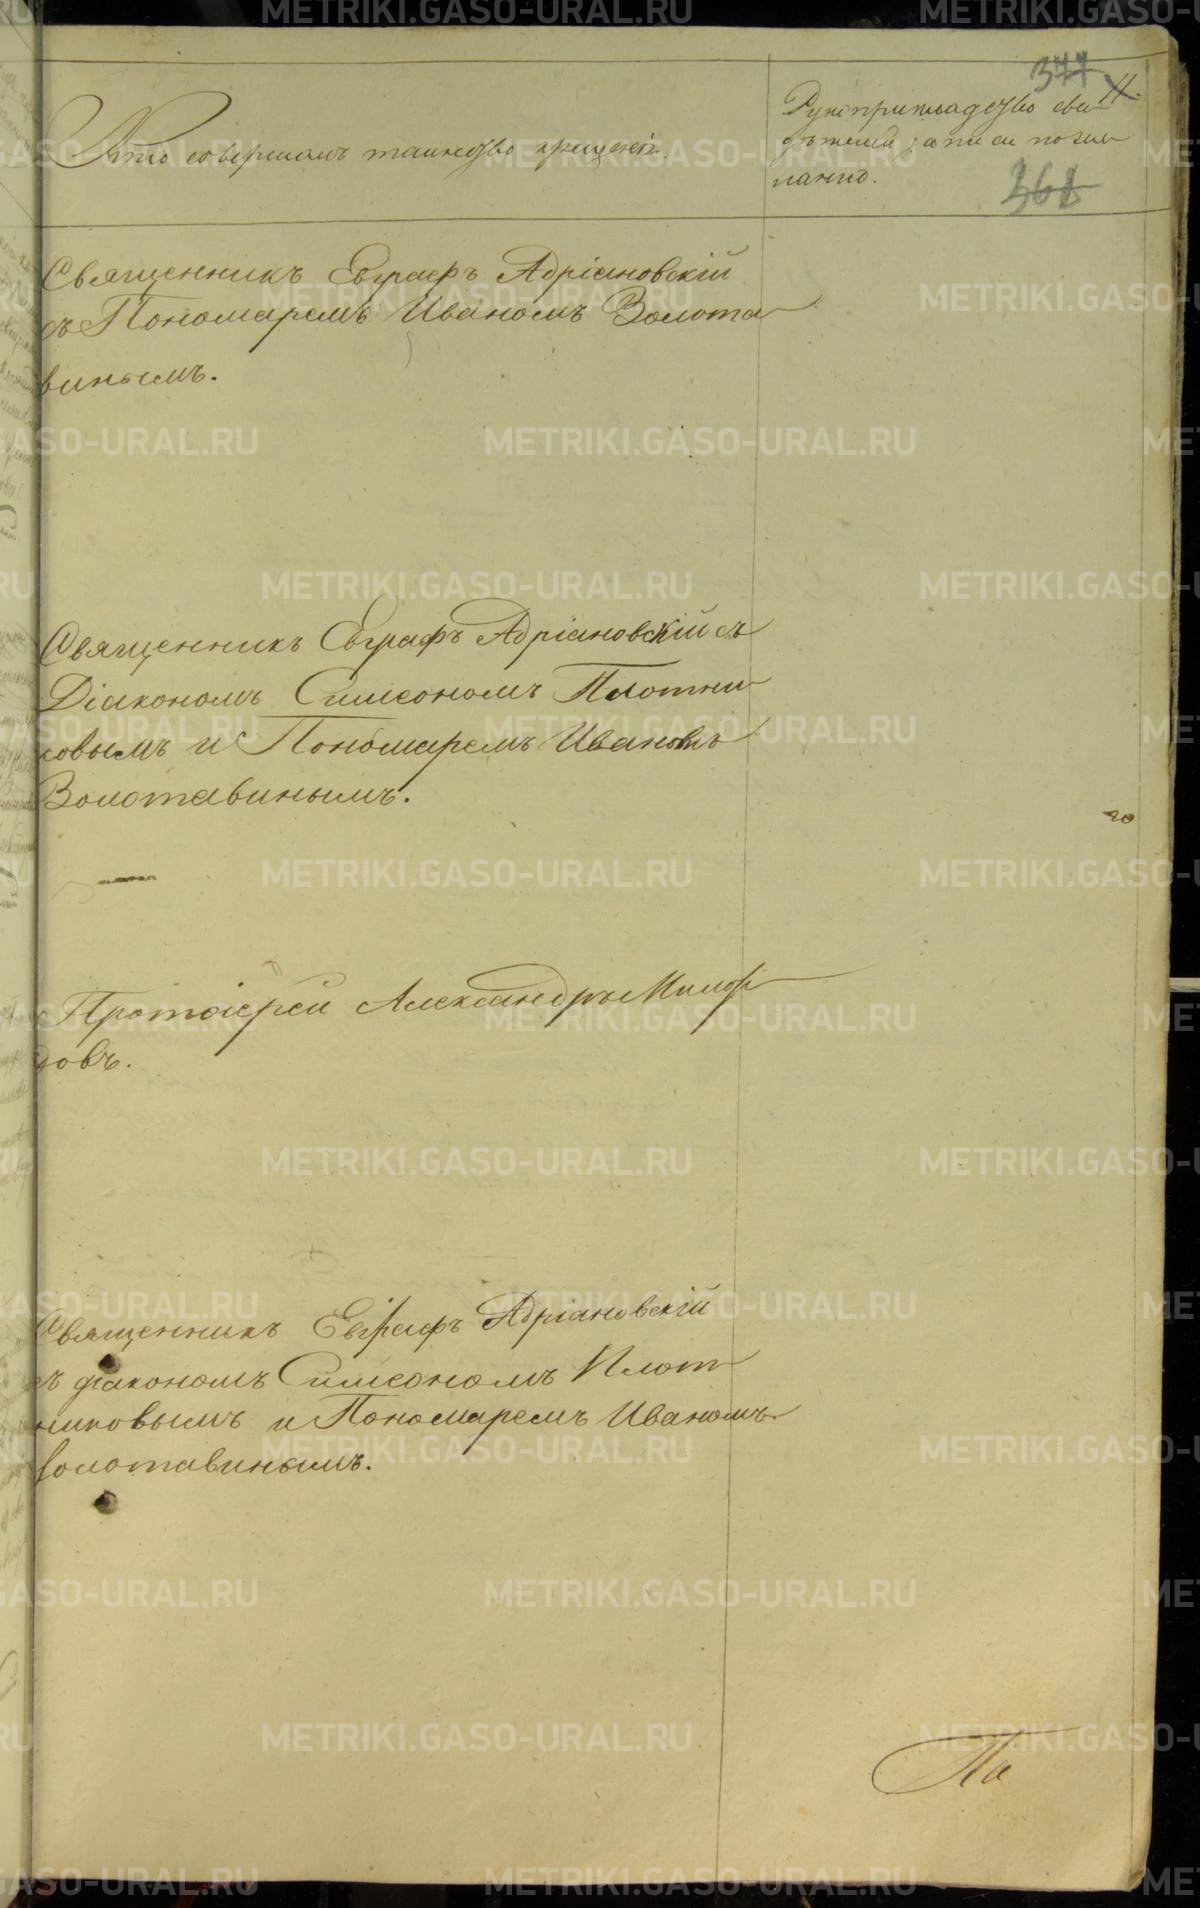 377
11.
Кто совершалъ таинство крещенія.
Рукоприкладство сви-
дѣтелей записи по же-
ланію.
368
Священникъ Евграфъ Адріановскій
съ Пономаремъ Иваномъ Золота-
винымъ.
Священникъ Евграфъ Адріановскій съ
Діакономъ Симеономъ Плотни-
ковымъ и Пономаремъ Иваномъ
Золотавинымъ.
го
Протоіерей Александръ Милор-
довъ.
Священникъ Евграфъ Адріановскій
съ діакономъ Симеономъ Плот-
никовымъ и Пономаремъ Иваномъ
Золотавинымъ.
По
METRIKI.GASO-URAL.RU